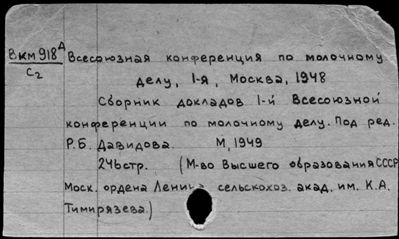 Вкм918д Всесоюзная конференция по молочному
С2 делу, 1-я, Москва, 1948
Сборник докладов 1-й Всесоюзной
конференции по молочному делу. Под ред.
Р.Б. Давидова. М, 1949
246стр. (М-во Высшего образования СССР
Моск. ордена Ленина сельскохоз. акад. им. К.А.
Тимирязева.)